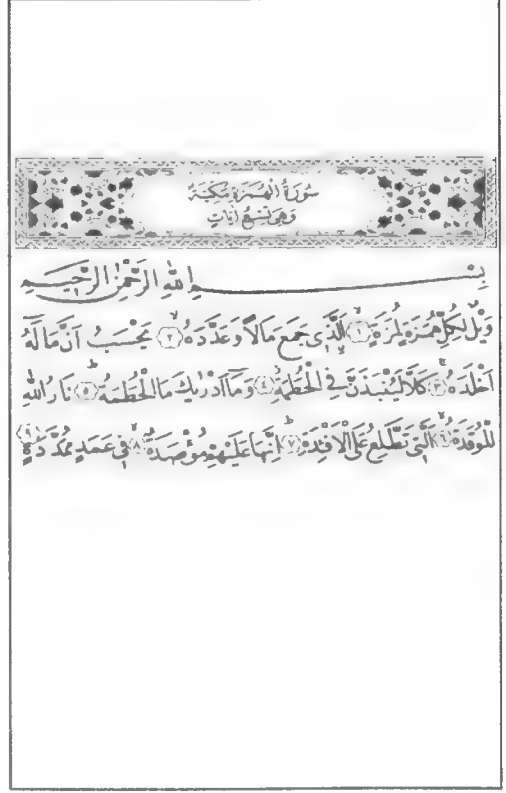 سُورَةُ الْهُمَزَةِ مَكِّيَّةٌ
وَهِيَ تِسْعُ اٰيَاتٍ
بِسْمِ اللّٰهِ الرَّحْمٰنِ الرَّحِيمِ
وَيْلٌ لِكُلِّ هُمَزَةٍ لُمَزَةٍ ﴿١﴾ اَلَّذِى جَمَعَ مَالًا وَعَدَّدَهُ ﴿٢﴾ يَحْسَبُ اَنَّ مَالَهُٓ
اَخْلَدَهُ ﴿٣﴾ كَلَّا لَيُنْبَذَنَّ فِى الْحُطَمَةِ ﴿٤﴾ وَمَٓا اَدْرٰيكَ مَا الْحُطَمَةُ ﴿٥﴾ نَارُ اللّٰهِ
الْمُوقَدَةُ ﴿٦﴾ اَلَّتِى تَطَّلِعُ عَلَى الْاَفْـِٔدَةِ ﴿٧﴾ اِنَّهَا عَلَيْهِمْ مُؤْصَدَةٌ ﴿٨﴾ فِى عَمَدٍ مُمَدَّدَةٍ ﴿٩﴾